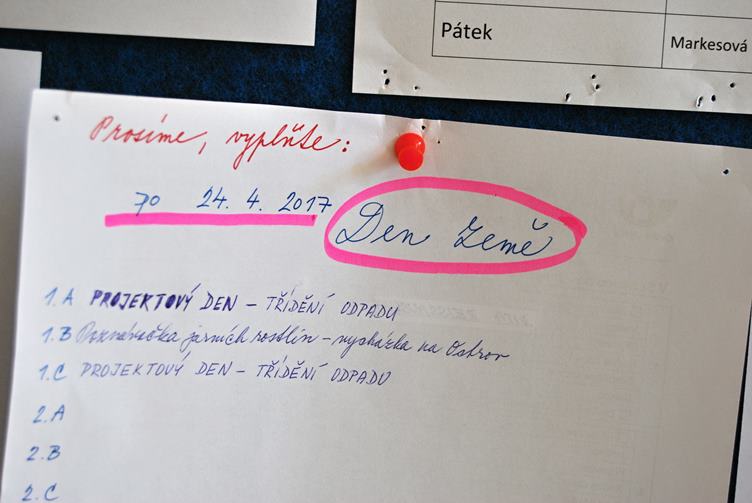 Pátek
Markesová
Prosíme, vyplňte:
Do 24. 4. 2017
Den Země
1.A PROJEKTOVÝ DEN – TŘÍDĚNÍ ODPADU
1.B Poznávačka jarních rostlin – vycházka na Ostrov
1.C PROJEKTOVÝ DEN – TŘÍDĚNÍ ODPADU
2.A
2.B
2.C